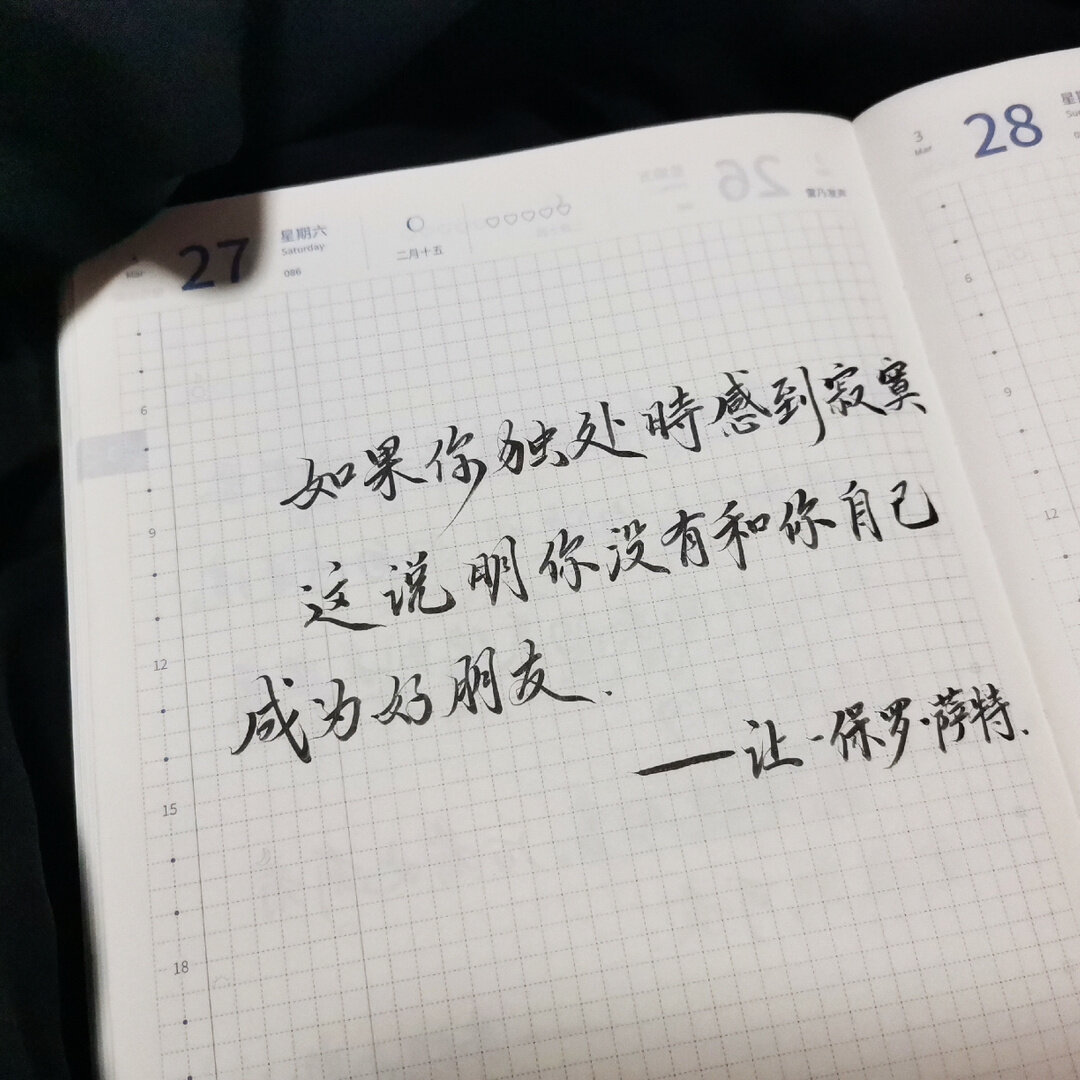 27
星期六
Saturday
086
Mar
二月十五
26
3
Mar
28
6
9
12
15
18
6
9
12
如果你独处時感到寂寞
这说明你没有和你自己
成为好朋友.
——让-保罗·萨特.